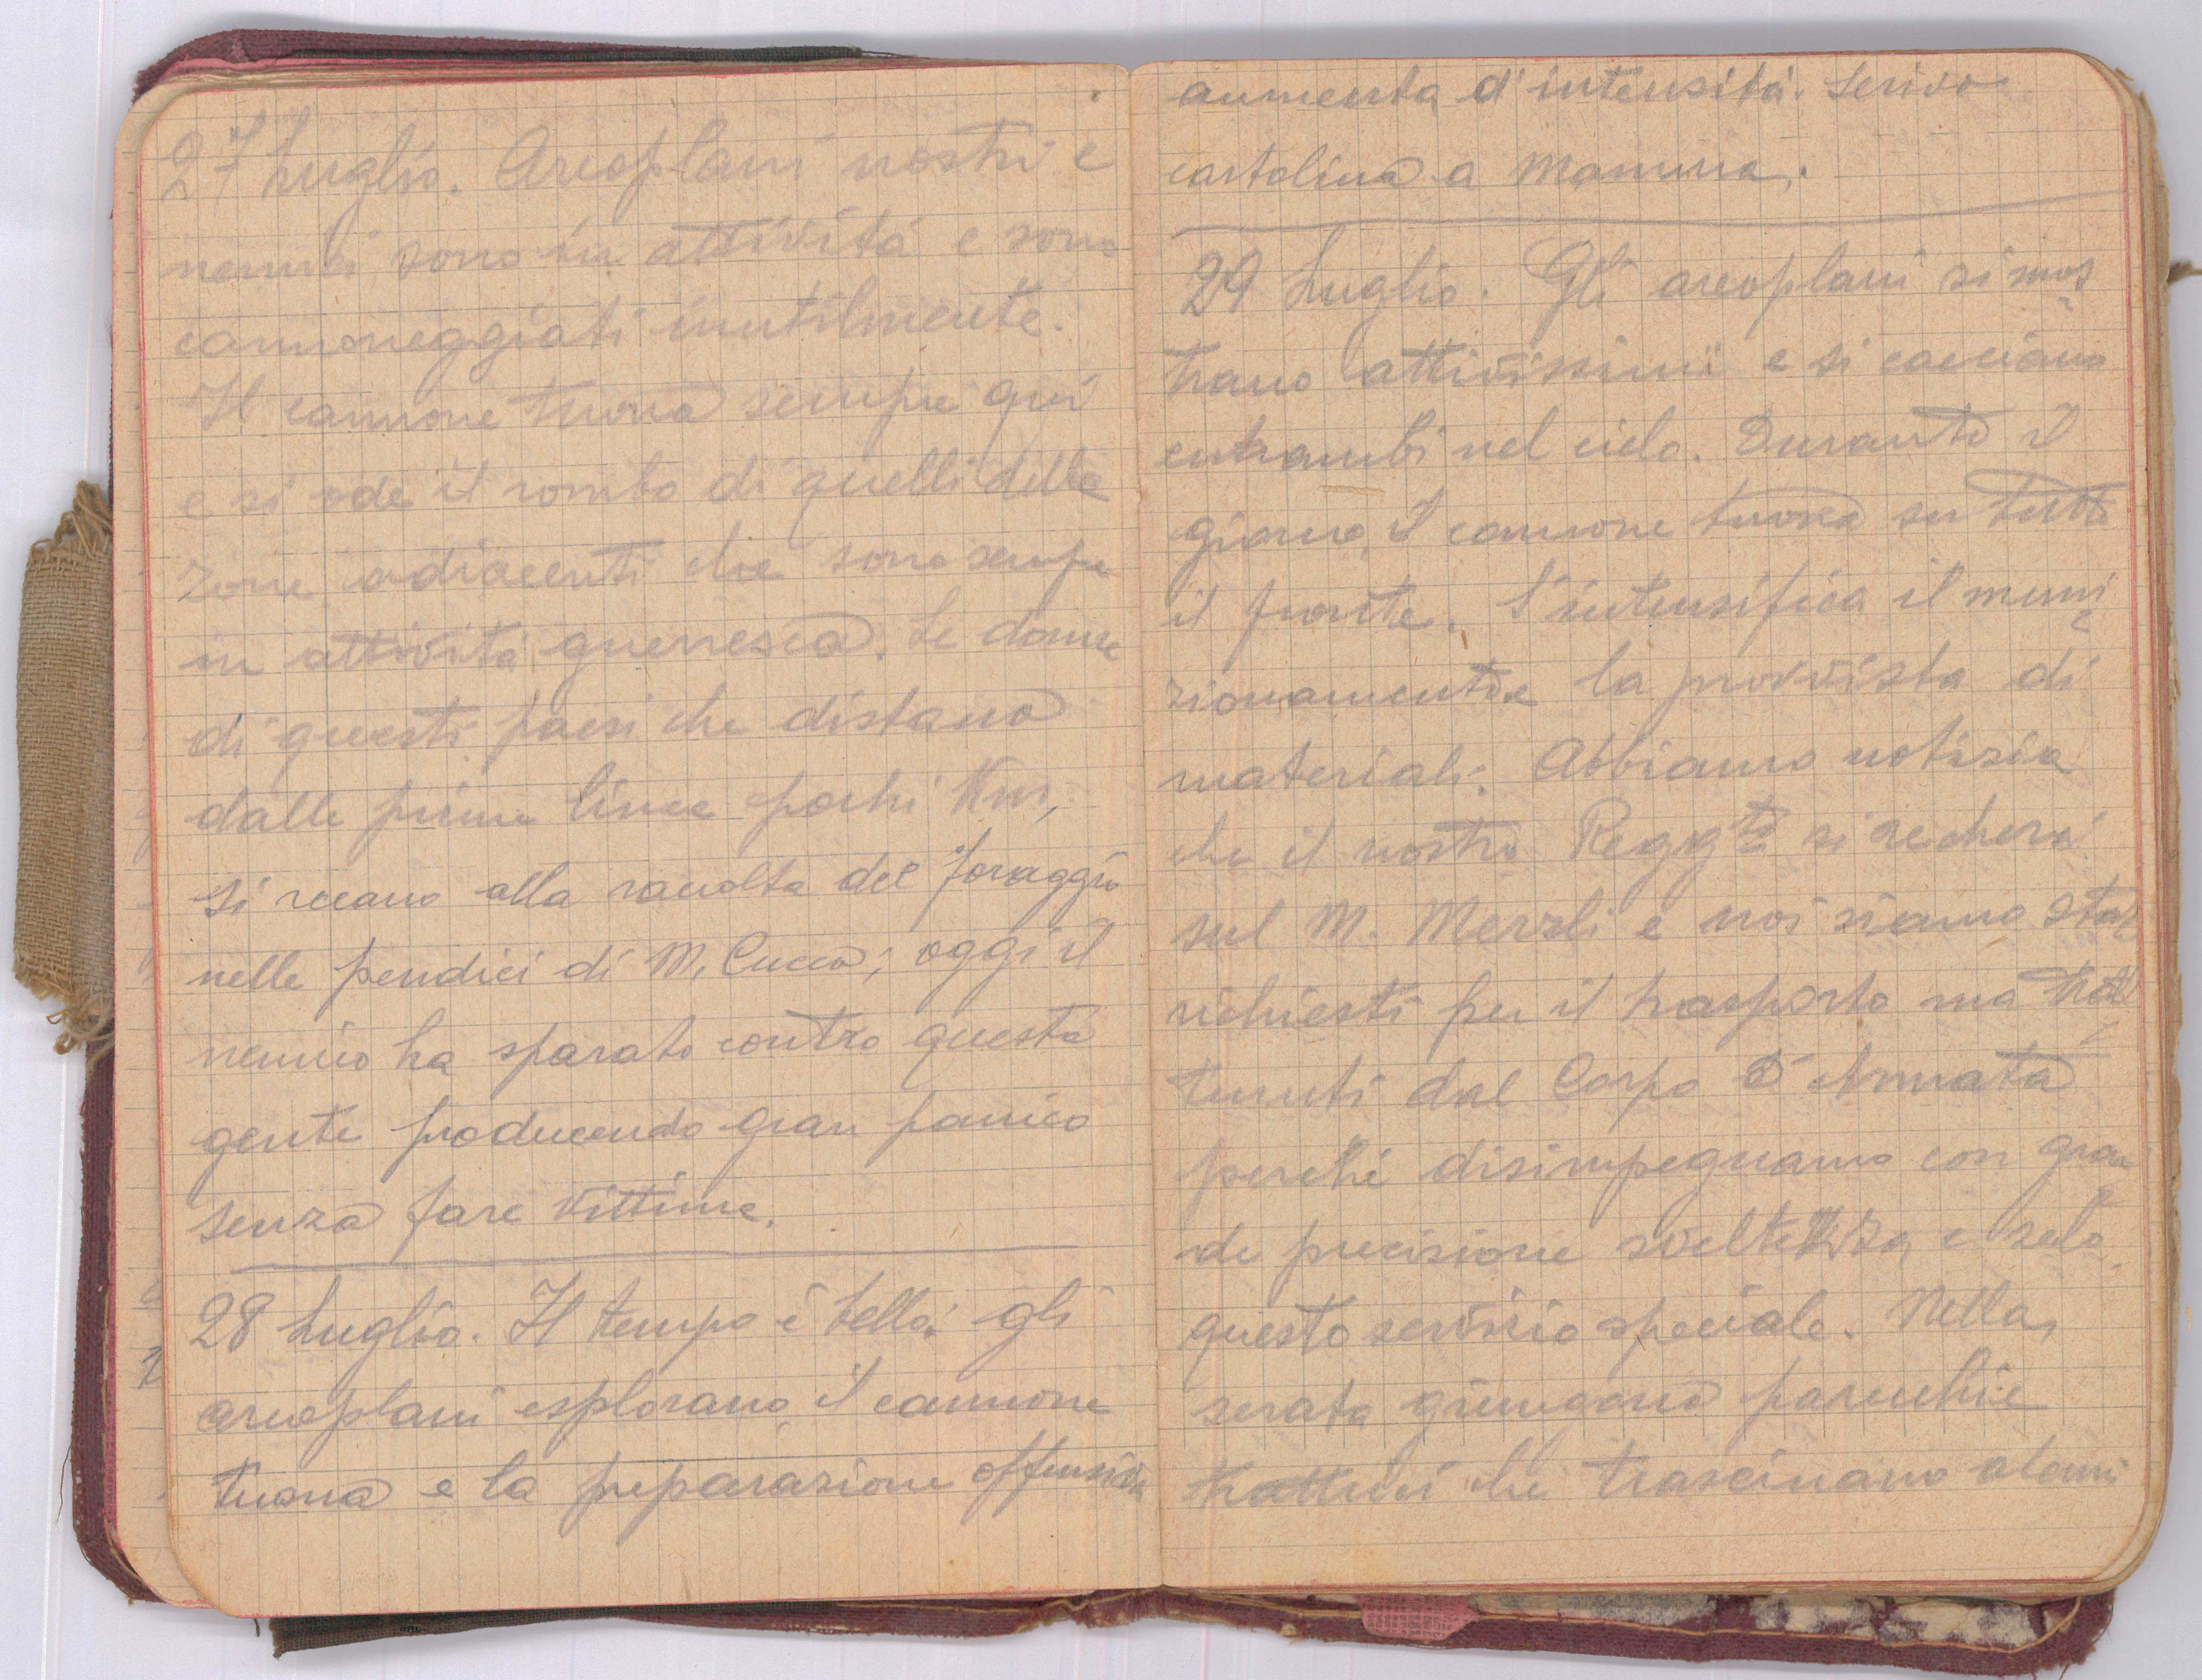 27 Luglio. Areoplani nostri e
nemici sono in attività e sono
cannoneggiati inutilmente.
Il cannone tuona sempre qui
e si ode il rombo di quelli delle
zone adiacenti che sono sempre
in attività guerresca. Le donne
di questi paesi che distano
dalle prime linee pochi Km,
si recano alla raccolta del foraggio
nelle pendici di M. Cucco; oggi il
nemico ha sparato contro questa
gente producendo gran panico
senza fare vittime.
28 Luglio. Il tempo è bello: gli
areoplani esplorano, il cannone
tuona e la preparazione offensiva
aumenta d'intensità. Scrivo
cartolina a Mamma.
29 Luglio. Gli areoplani si mos
trano attivissimi e si cacciano
entrambi nel cielo. Durante il
giorno, il cannone tuona su tutto
il fronte. S'intensifica il muni
zionamento e la provvista di
materiali. Abbiamo notizia
che il nostro Regg.to si recherà
sul M. Merzli e noi siamo stati
richiesti per il trasporto ma trat
tenuti dal Corpo d'Armata
perchè disimpegnamo con gran
de precisione sveltezza, e zelo
questo servizio speciale. Nella
serata giungono parecchie
trattrici che trascinano alcuni